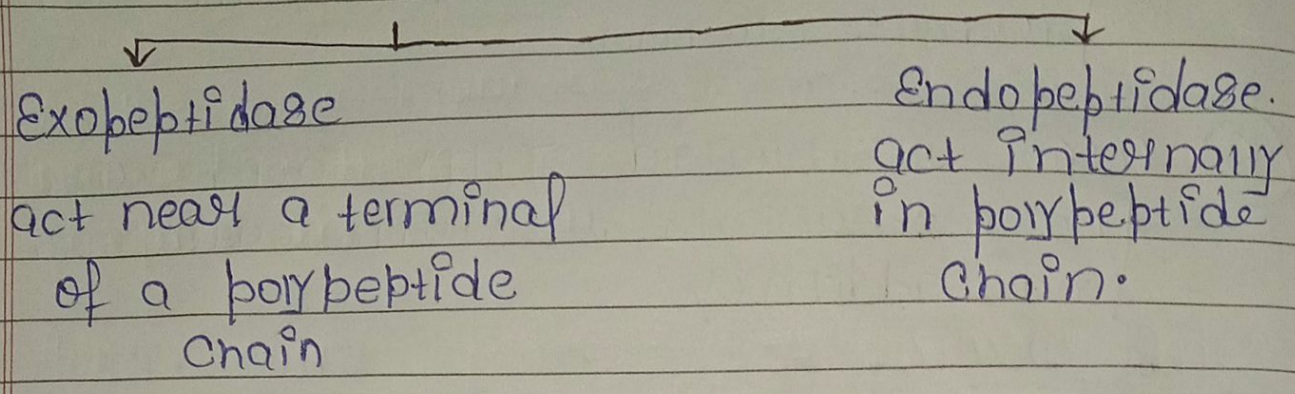 Exopeptidase
act near a terminal
of a polypeptide
chain
Endopeptidase.
act internally
in polypeptide
chain.